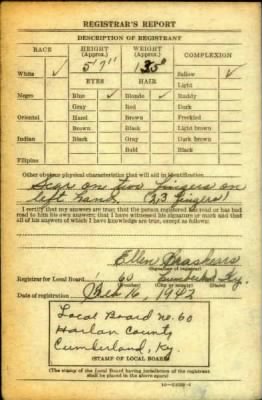 REGISTRAR'S REPORT
DESCRIPTION OF REGISTRANT
RACE HEIGHT (Approx.) WEIGHT (Approx.) COMPLEXION
White ✓ 5'7" Sallow ✓
EYES HAIR Light
Negro Blue ✓ Blonde ✓ Ruddy
Gray Red Dark
Oriental Hazel Brown Freckled
Brown Black Light brown
Indian Black Gray Dark brown
Bald Black
Filipino
Other obvious physical characteristics that will aid in identification
Scar on two fingers on
left hand (2-3 fingers)
I certify that my answers are true; that the person registered has read or has had
read to him his own answers; that I have witnessed his signature or mark and that
all of his answers of which I have knowledge are true, except as follows:
Ellen Brashears
(Signature of registrar)
Registrar for Local Board 60 Cumberland Ky.
(Number) (City or county) (State)
Date of registration Feb 16 1942
Local Board No. 60
Harlan County
Cumberland, Ky.
(STAMP OF LOCAL BOARD)
(The stamp of the Local Board having jurisdiction of the registrant
shall be placed in the above space)